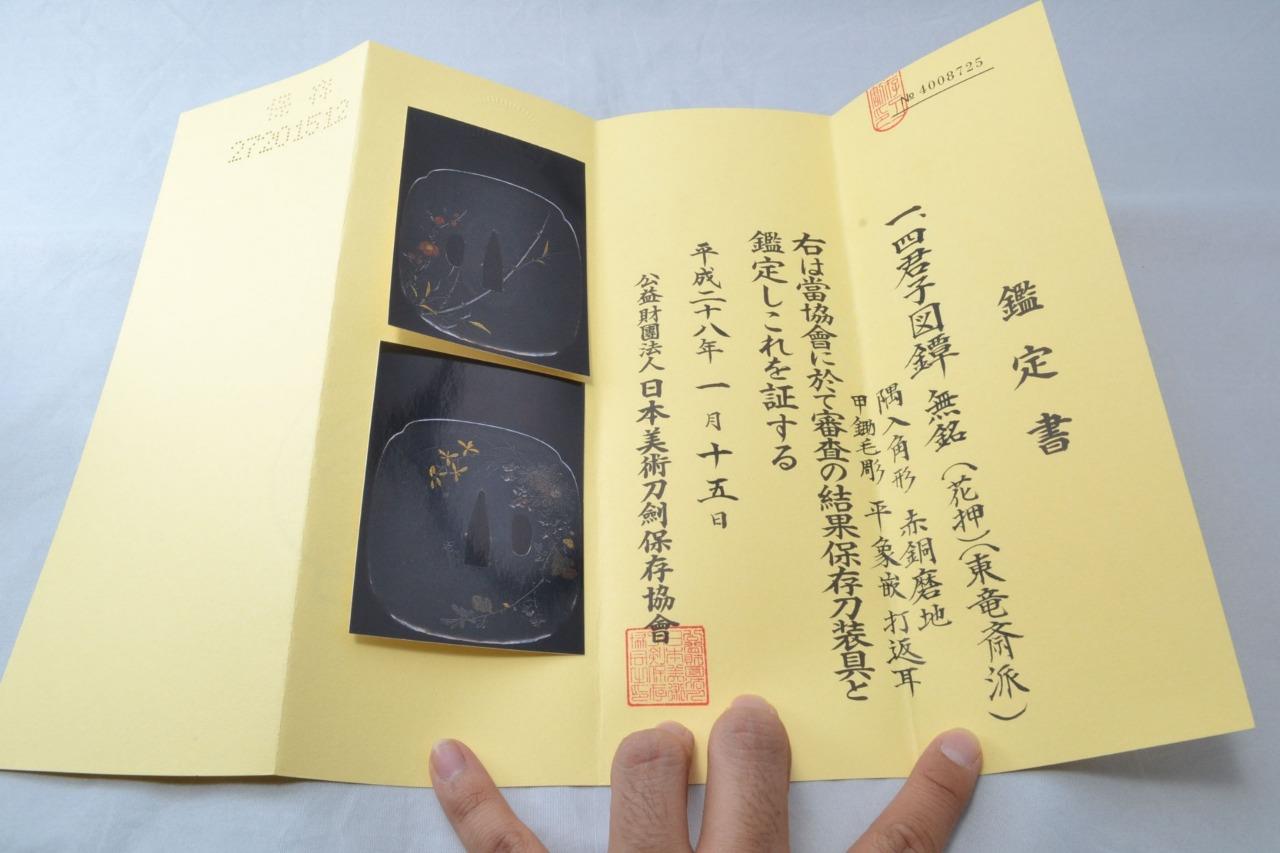 № 4008725
鑑定書
一、四君子図鐔 無銘(花押)(東竜斎派)
隅入角形 赤銅磨地
甲鋤毛彫 平象嵌 打返耳
右は當協會に於て審査の結果保存刀装具と
鑑定しこれを証する
平成二十八年一月十五日
公益財團法人 日本美術刀劍保存協會
保存
27201512